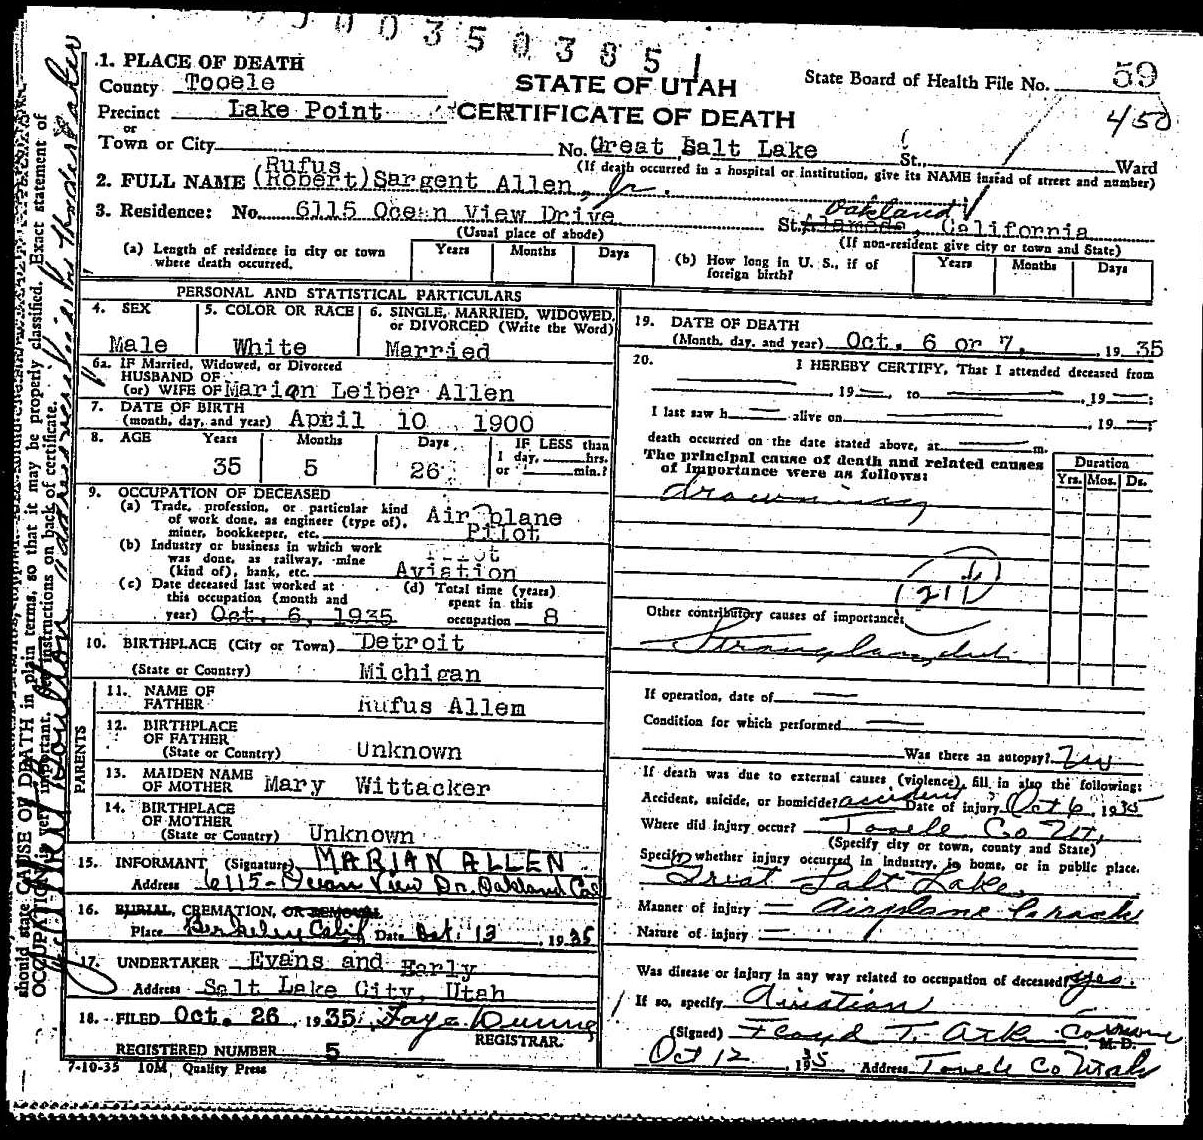 3500350385 1
1. PLACE OF DEATH
County Tooele
STATE OF UTAH
State Board of Health File No. 59
Precinct Lake Point
CERTIFICATE OF DEATH
450
or
Town or City
No. Great Salt Lake St., Ward
(If death occurred in a hospital or institution, give its NAME instead of street and number)
Rufus
2. FULL NAME (Robert) Sargent Allen, Jr.
3. Residence: No. 6115 Ocean View Drive St. Alameda, Oakland California
(Usual place of abode)
(If non-resident give city or town and State)
(a) Length of residence in city or town where death occurred.
Years Months Days
(b) How long in U. S., if of foreign birth?
Years Months Days
PERSONAL AND STATISTICAL PARTICULARS
4. SEX
Male
5. COLOR OR RACE
White
6. SINGLE, MARRIED, WIDOWED, or DIVORCED (Write the Word)
Married
6a. IF Married, Widowed, or Divorced
HUSBAND OF
(or) WIFE OF Marion Leiber Allen
7. DATE OF BIRTH
(month, day, and year) April 10 1900
8. AGE Years Months Days
35 5 26
IF LESS than
1 day, hrs.
or min.?
9. OCCUPATION OF DECEASED
(a) Trade, profession, or particular kind
of work done, as engineer (type of),
miner, bookkeeper, etc. Airplane Pilot
(b) Industry or business in which work
was done, as railway, mine
(kind of), bank, etc. Aviation
(c) Date deceased last worked at
this occupation (month and
year) Oct. 6, 1935
(d) Total time (years)
spent in this
occupation 8
10. BIRTHPLACE (City or Town) Detroit
(State or Country) Michigan
PARENTS
11. NAME OF
FATHER Rufus Allem
12. BIRTHPLACE
OF FATHER
(State or Country) Unknown
13. MAIDEN NAME
OF MOTHER Mary Wittacker
14. BIRTHPLACE
OF MOTHER
(State or Country) Unknown
15. INFORMANT (Signature) MARIAN ALLEN
Address 6115 - Ocean View Dr. Oakland Cal
16. BURIAL, CREMATION, OR REMOVAL
Place Berkeley Calif Date Oct. 13, 1935
17. UNDERTAKER Evans and Early
Address Salt Lake City, Utah
18. FILED Oct. 26, 1935, Faye Dunne
REGISTRAR.
REGISTERED NUMBER 5
7-10-35 10M, Quality Press
19. DATE OF DEATH
(Month, day, and year) Oct. 6 or 7, 19 35
20. I HEREBY CERTIFY, That I attended deceased from
, 19 , to , 19 ;
I last saw h alive on , 19 ;
death occurred on the date stated above, at m.
The principal cause of death and related causes
of importance were as follows:
Duration
Yrs. Mos. Ds.
drowning
Other contributory causes of importance:
If operation, date of
Condition for which performed
Was there an autopsy? No
If death was due to external causes (violence), fill in also the following:
Accident, suicide, or homicide? accident Date of injury Oct 6, 1935
Where did injury occur? Tooele Co Ut,
(Specify city or town, county and State)
Specify whether injury occurred in industry, in home, or in public place.
Great Salt Lake
Manner of injury Airplane Crash
Nature of injury
Was disease or injury in any way related to occupation of deceased? yes.
If so, specify Aviation
(Signed) Floyd T. Atk
M. D.
Oct 12, 1935 Address Tooele Co Utah
should state CAUSE OF DEATH in plain terms, so that it may be properly classified. Exact statement of
OCCUPATION is very important. See instructions on back of certificate.